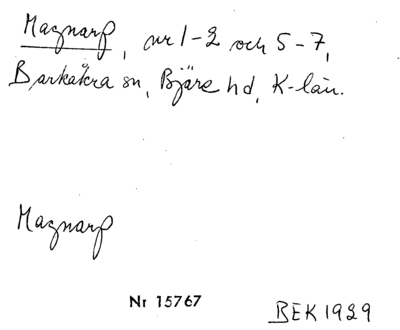 Magnarp, nr 1-2 och 5-7,
Barkåkra sn, Bjäre hd, K-län.
Magnarp
Nr 15767
BEK 1929